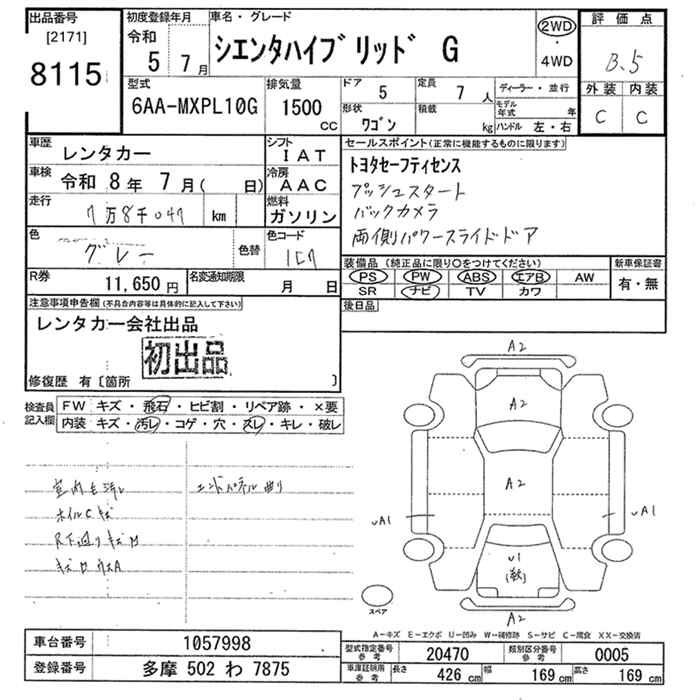 出品番号
[2171]
8115
初度登録年月
令和
5 7 月
車名・グレード
シエンタハイブリッド G
2WD
・
4WD
評価点
3.5
外装 内装
C C
型式
6AA-MXPL10G
排気量
1500
cc
ドア 5
形状 ワゴン
定員 7 人
積載 kg
ディーラー・並行
モデル年式 年
ハンドル 左・右
車歴 レンタカー
シフト IAT
車検 令和 8 年 7 月( 日)
冷房 AAC
走行 7万8千047 km
燃料 ガソリン
色 グレー 色替
色コード
R券 11,650 円
名変通知期限 月 日
セールスポイント(正常に機能するものに限ります)
トヨタセーフティセンス
プッシュスタート
バックカメラ
両側パワースライドドア
装備品(純正品に限り〇をつけてください)
PS PW ABS エアB AW
SR ナビ TV カワ
新車保証書
有・無
後日品
注意事項申告欄(不具合内容等は具体的に記入して下さい)
レンタカー会社出品
初出品
修復歴 有〔箇所 〕
検査員記入欄
FW キズ・飛石・ヒビ割・リペア跡・×要
内装 キズ・汚レ・コゲ・穴・スレ・キレ・破レ
ホイルCキズ
エンドパネル曲り
A2
A2
A2
uA1
uA1
U1
A2
スペア
A－キズ E－エクボ U－凹み W－補修跡 S－サビ C－腐食 XX－交換済
車台番号 1057998
登録番号 多摩 502 わ 7875
型式指定番号 参考 20470
類別区分番号 参考 0005
車庫証明用 参考 長さ 426 cm 幅 169 cm 高さ 169 cm